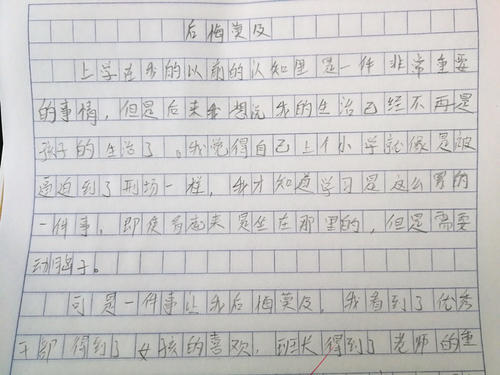 后悔莫及
上学在我的以前的认知里是一件非常重要
的事情，但是后来我想说我的生活已经不再是
孩子的生活了。我觉得自己上个小学就像是被
逼迫到了刑场一样，我才知道学习是这么累的
一件事，即使看起来是坐在那里的，但是需要
动脑子。
可是一件事让我后悔莫及，我看到了优秀
干部得到了女孩的喜欢，班长得到了老师的重